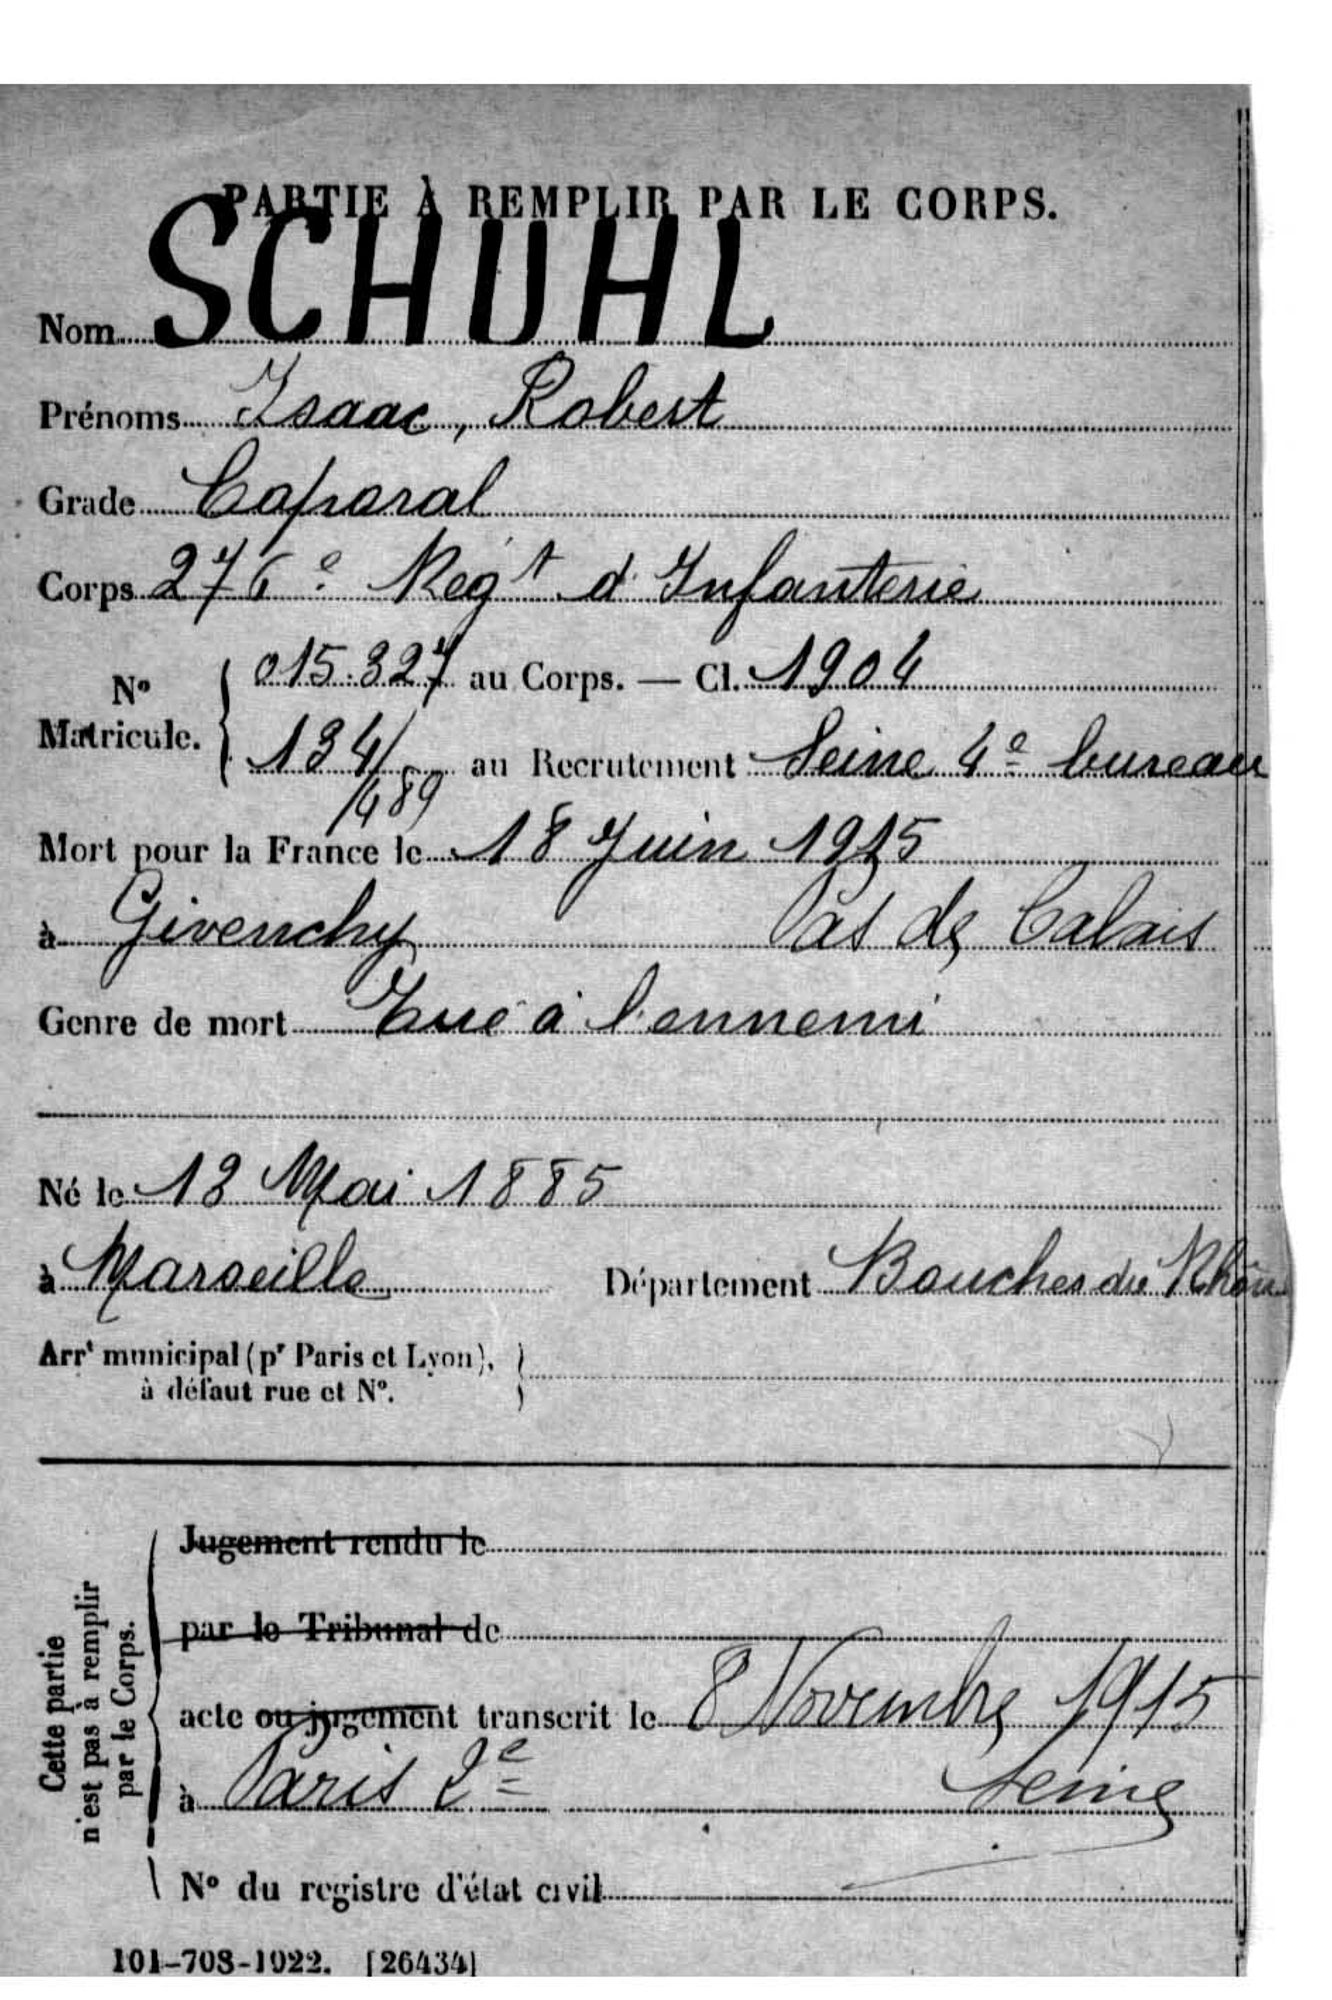 PARTIE À REMPLIR PAR LE CORPS.
Nom SCHUHL
Prénoms Isaac, Robert
Grade Caporal
Corps 276e Régt d'Infanterie
No Matricule. { 015.327 au Corps. — Cl. 1904
134/489 au Recrutement Seine 4e bureau
Mort pour la France le 18 Juin 1915
à Givenchy Pas de Calais
Genre de mort Tué à l'ennemi
Né le 13 Mai 1885
à Marseille Département Bouches du Rhône
Arrt municipal (pr Paris et Lyon),
à défaut rue et No.
Cette partie
n'est pas à remplir
par le Corps.
Jugement rendu le
par le Tribunal de
acte ou jugement transcrit le 8 Novembre 1915
à Paris 2e Seine
No du registre d'état civil
101-708-1922. [26434]